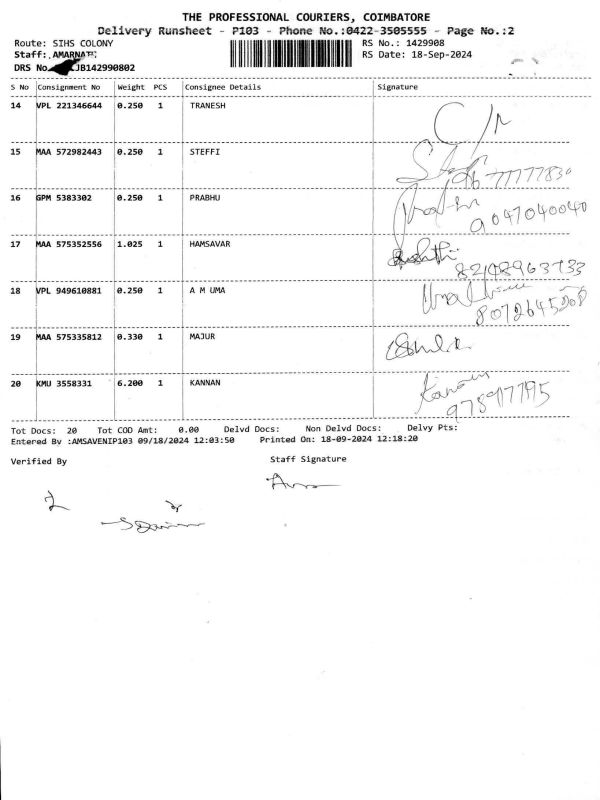 THE PROFESSIONAL COURIERS, COIMBATORE
Delivery Runsheet - P103 - Phone No.:0422-3505555 - Page No.:2
Route: SIHS COLONY RS No.: 1429908
Staff: AMARNATH RS Date: 18-Sep-2024
DRS No. JB142990802
S No Consignment No Weight PCS Consignee Details Signature
14 VPL 221346644 0.250 1 TRANESH
15 MAA 572982443 0.250 1 STEFFI
16 GPM 5383302 0.250 1 PRABHU
9047040040
17 MAA 575352556 1.025 1 HAMSAVAR
18 VPL 949610881 0.250 1 A M UMA
8072645208
19 MAA 575335812 0.330 1 MAJUR
20 KMU 3558331 6.200 1 KANNAN
Kannan
Tot Docs: 20 Tot COD Amt: 0.00 Delvd Docs: Non Delvd Docs: Delvy Pts:
Entered By :AMSAVENIP103 09/18/2024 12:03:50 Printed On: 18-09-2024 12:18:20
Verified By Staff Signature